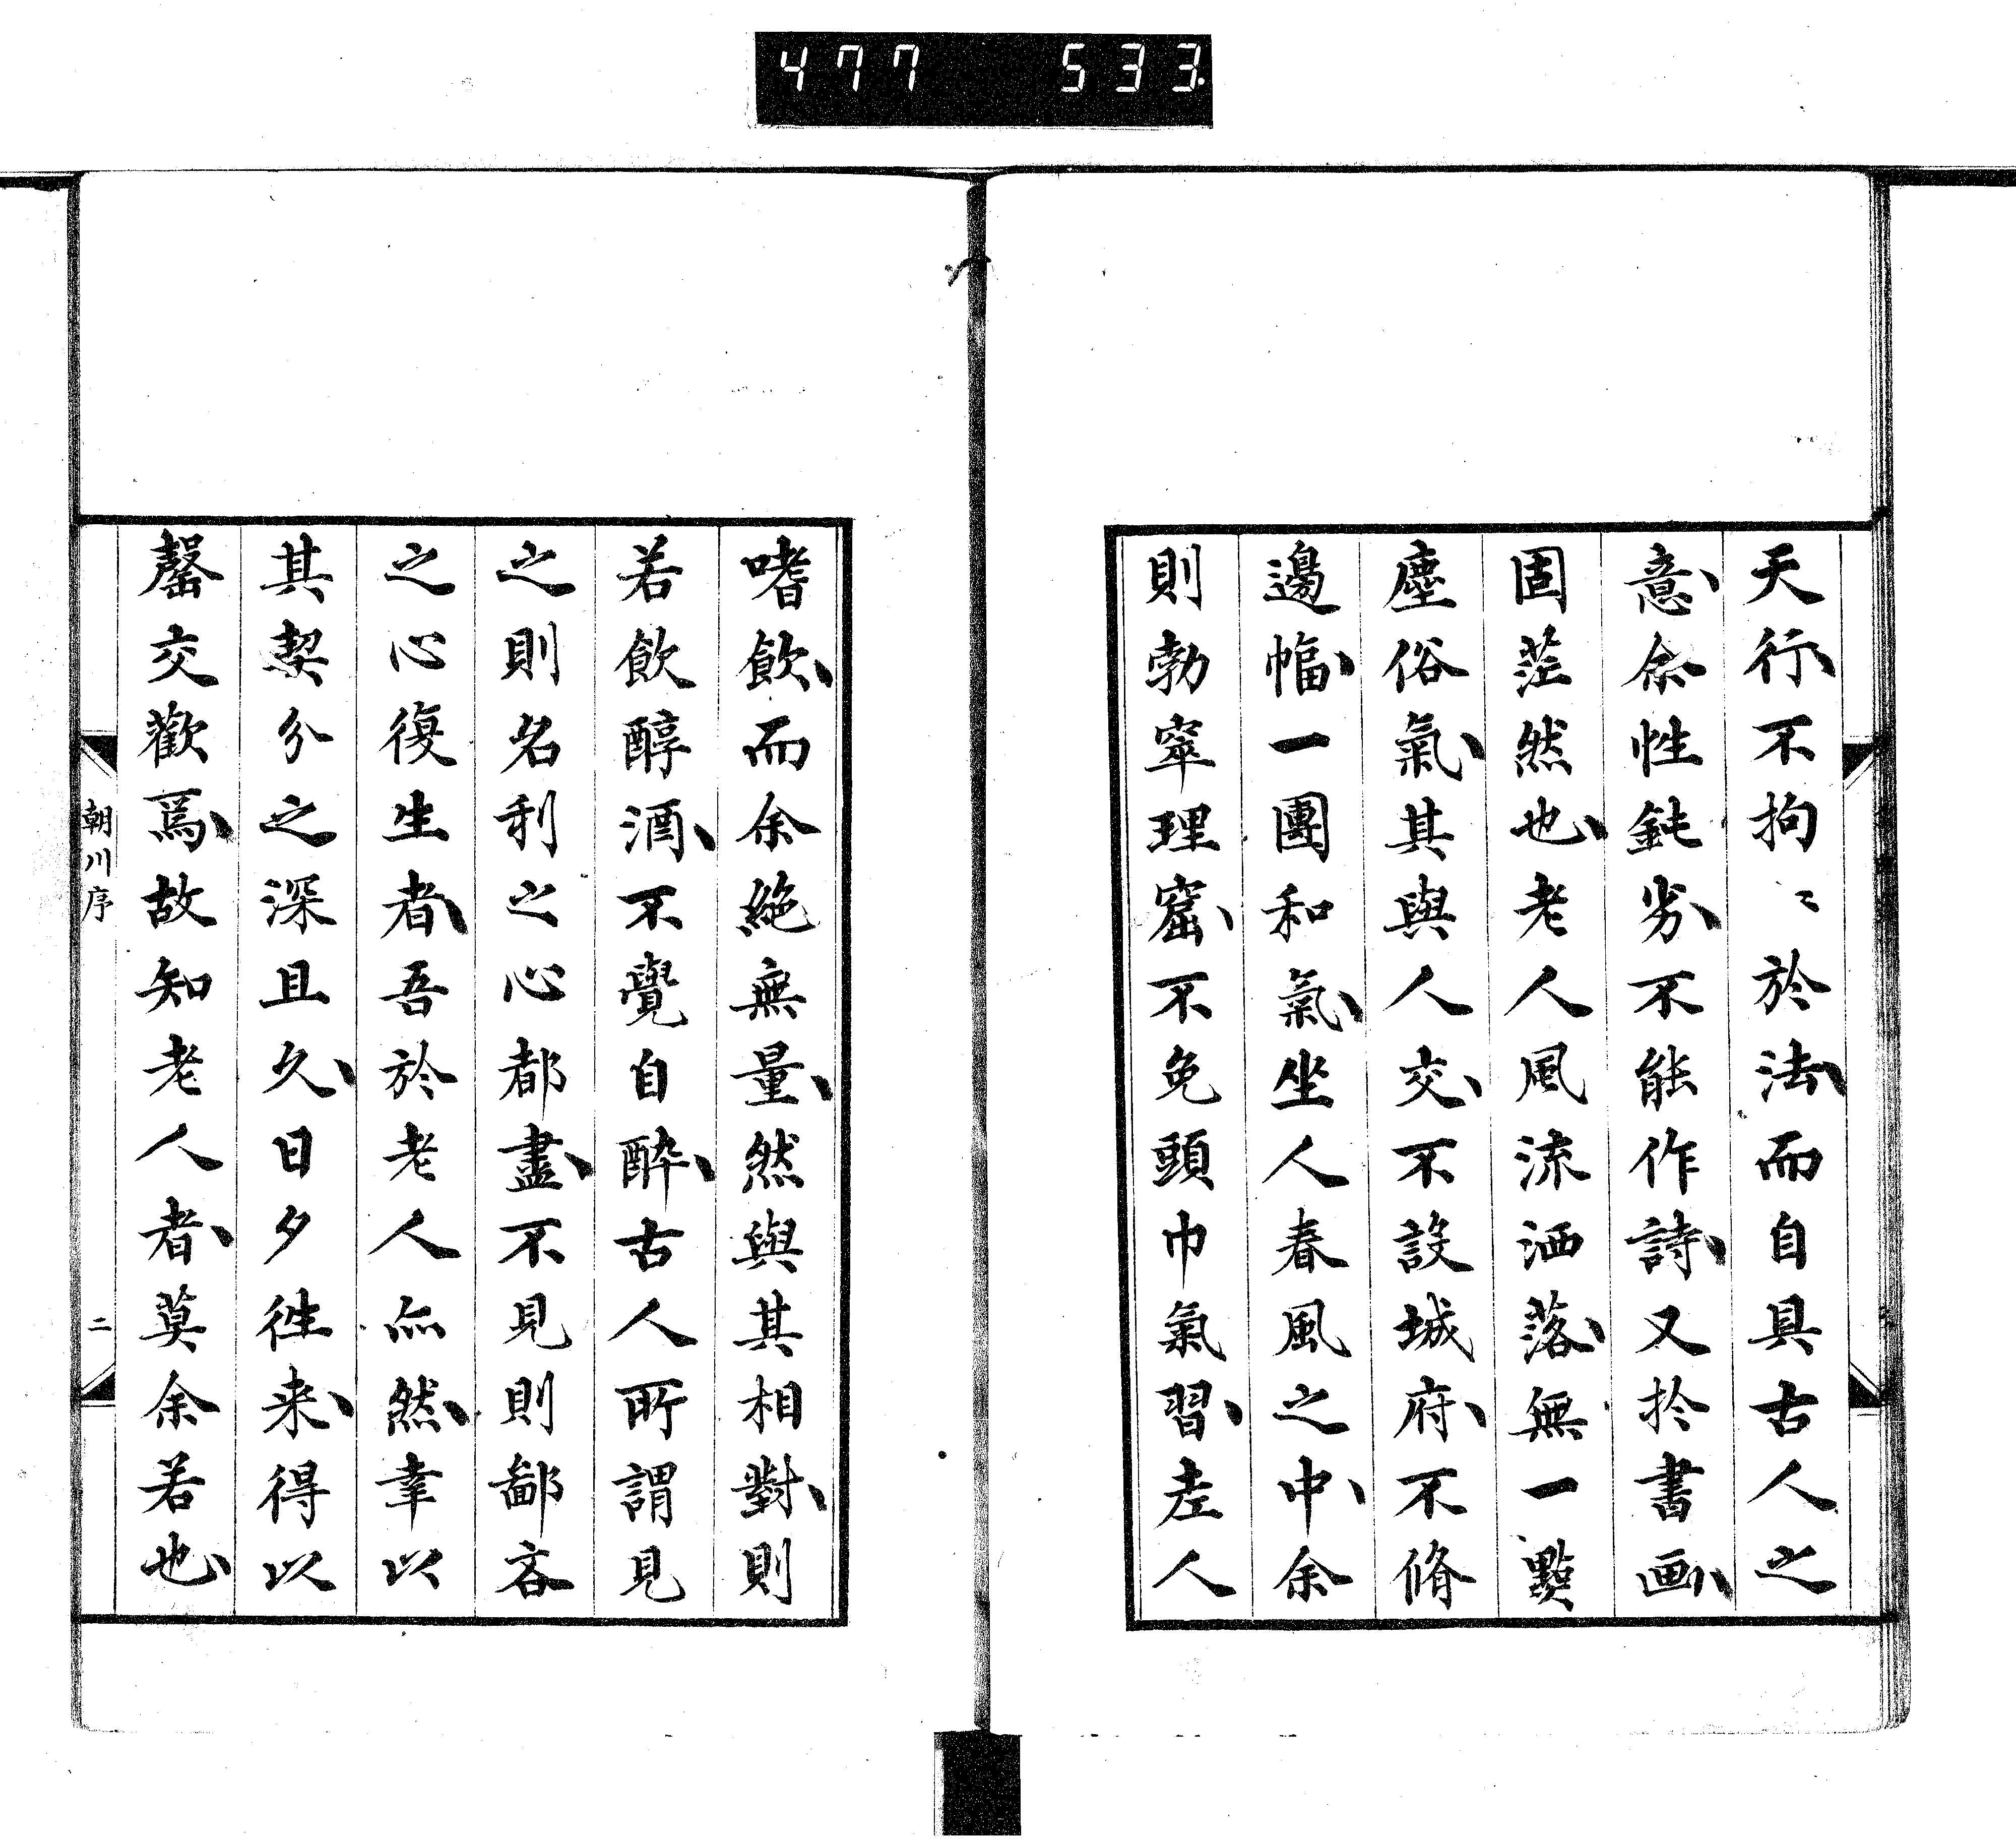 477 533.
天行、不拘〻於法、而自具古人之
意、余性鈍劣、不能作詩、又於書画、
固茫然也、老人風流洒落、無一點
塵俗氣、其與人交、不設城府、不脩
邊幅、一團和氣、坐人春風之中、余
則勃窣理窟、不免頭巾氣習、老人
嗜飲、而余絶無量、然與其相對、則
若飲醇酒、不覺自醉、古人所謂見
之則名利之心都盡、不見則鄙吝
之心復生者、吾於老人亦然、幸以
其契分之深且久、日夕徃来、得以
罄交歡焉、故知老人者、莫余若也、
朝川序
二